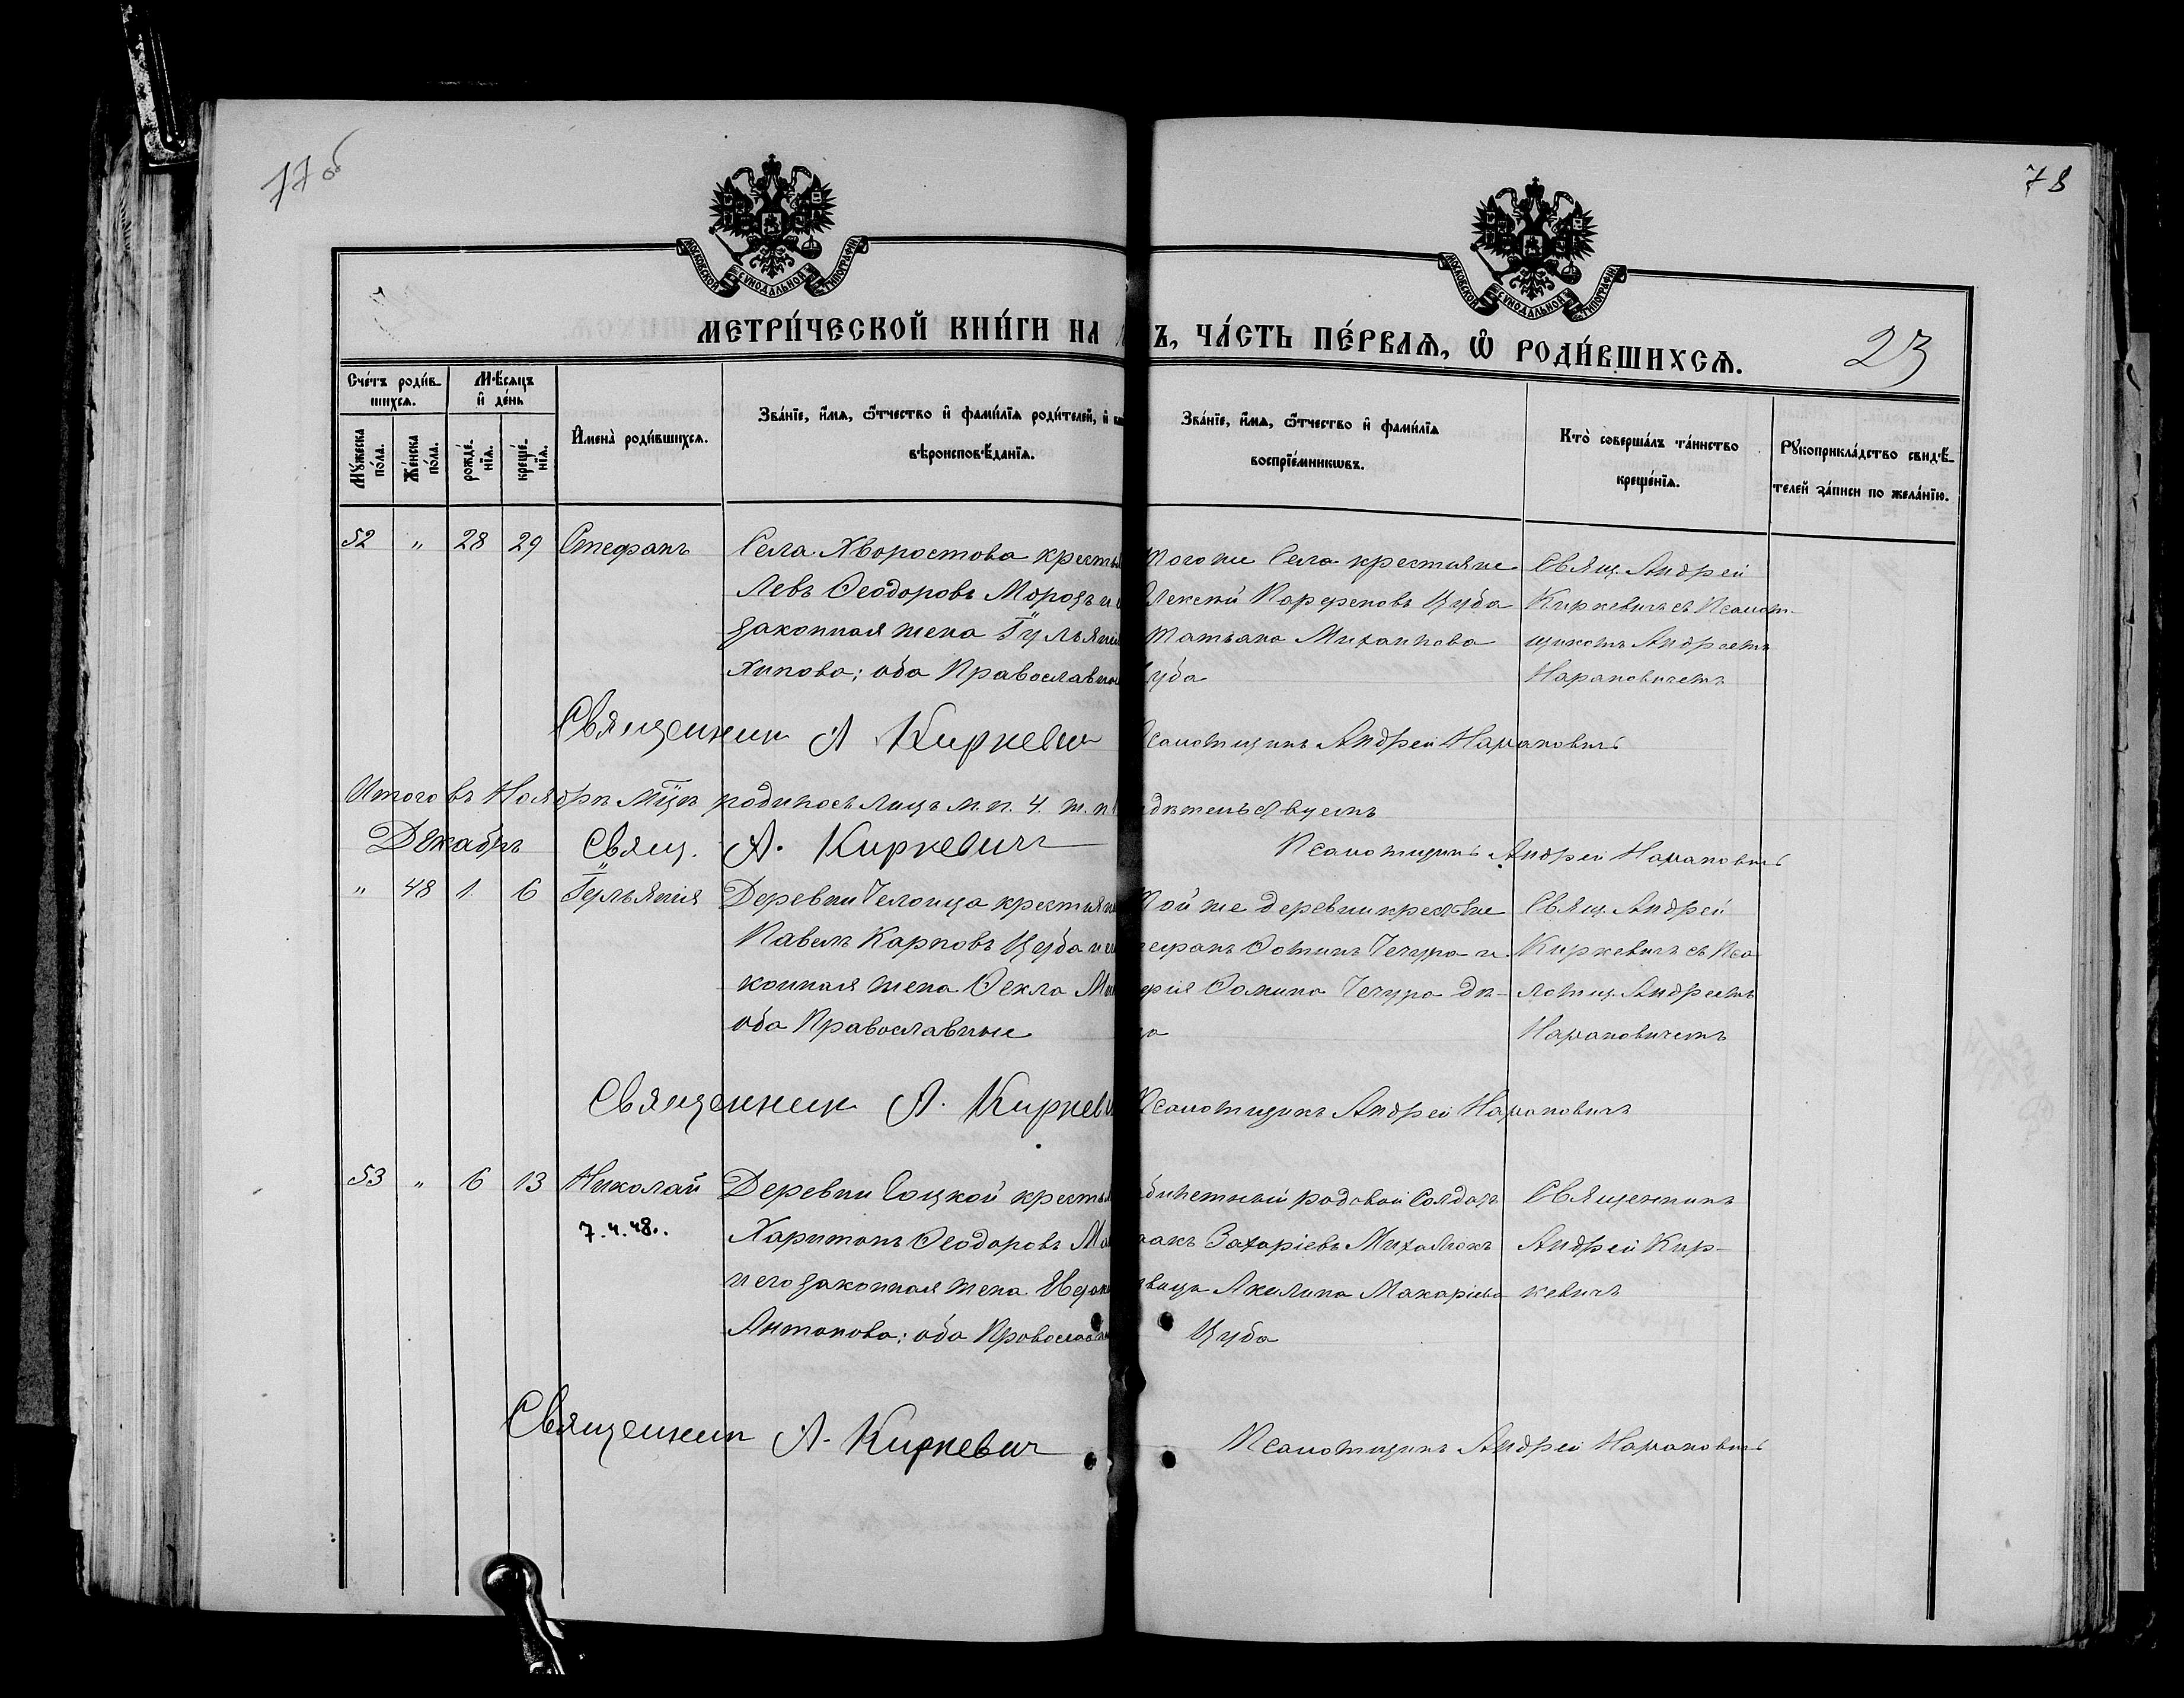 77 об
78
МОСКОВСКОЙ СѴНОДАЛЬНОЙ ТИПОГРАФІИ
МОСКОВСКОЙ СѴНОДАЛЬНОЙ ТИПОГРАФІИ
МЕТРИ́ЧЕСКОЙ КНИ́ГИ НА
Ъ, ЧА́СТЬ ПЕ́РВАѦ, Ѽ РОДИ́ВШИХСѦ.
23
Сче́тъ роди́в-
шихсѧ.
Мѣ́сѧцъ
и҆ де́нь
И҆мена̀ роди́вшихсѧ.
Зва́нїе, и҆́мѧ, ѻ҆́тчество и҆ фами́лїѧ роди́телей, и҆
вѣроисповѣ́данїѧ.
Зва́нїе, и҆́мѧ, ѻ҆́тчество и҆ фами́лїѧ
воспрїе́мникѡвъ.
Кто̀ соверша́лъ та́инство
креще́нїѧ.
Рꙋкоприкла́дство свидѣ́-
телей за́писи по жела́нїю.
Мꙋ́жеска
по́ла.
Же́нска
по́ла.
рожде́-
нїѧ.
креще́-
нїѧ.
52 " 28 29 Стефанъ
Села Хворостова кресть
Левъ Ѳеодоровъ Морозъ и
законная жена Іульян
хипова; оба Православны
того же Села крестьяне
лексѣй Парѳеновъ Цуба
Татьяна Михаилова
уба
Свящ. Андрей
Киркевичъ съ Псалом-
щикомъ Андреемъ
Нарановичемъ
Священник А Киркевич
саломщикъ Андрей Нарановичъ
Итого въ Ноябрѣ мцѣ родилось лицъ м.п. 4. ж.п.
дѣтельствуемъ
Декабрь Свящ. А. Киркевич
Псаломщикъ Андрей Нарановичъ
" 48 1. 6 Іульянія
Деревни Челонца крестьян
Павелъ Карповъ Цуба и е
конная жена Ѳекла М
оба Православные
той же деревни кресьяне
тефанъ Ѳоминъ Чечура и
рія Ѳомина Чечура дѣ-
ца
Свящ. Андрей
Киркевичъ съ Пса
ломщ. Андреемъ
Нарановичемъ
Священник А. Киркев
Псаломщикъ Андрей Нарановичъ
53 " 6 13 Николай
7.4.48.
Деревни Соцкой кресть
Харитонъ Ѳеодоровъ М
и его законная жена
Антонова; оба Православ
билетный рядовой Солдатъ
саакъ Захаріевъ Михалюкъ
вица Акилина Макаріева
Цуба
Священникъ
Андрей Кир-
кевичъ
Священник А. Киркевич
Псаломщикъ Андрей Нарановичъ